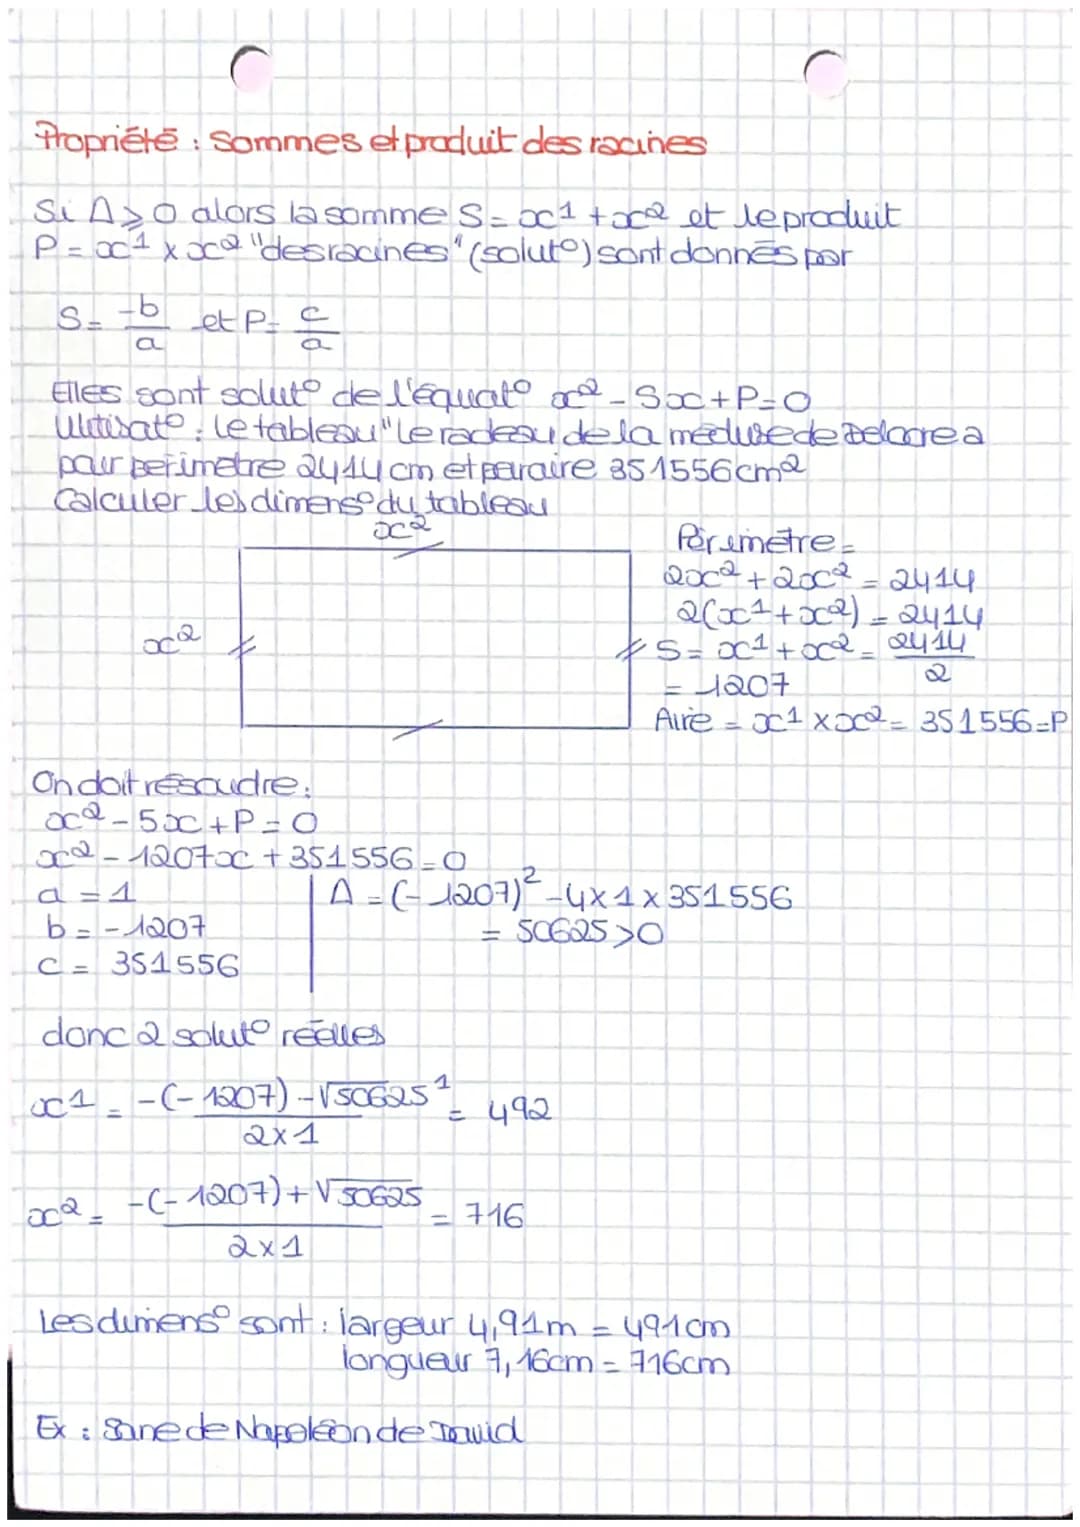 Propriété : Sommes et produit des racines
Si Δ ≥ 0 alors la somme S = x1 + x2 et le produit
P = x1 × x2 "des racines" (solut°) sont donnés par
S = -b/a et P = c/a
Elles sont solut° de l'équat° x² - Sx + P = 0
Utilisat° : le tableau "le radeau de la méduse de Delacre a
pour perimetre 2414 cm et par aire 351556 cm²
Calculer les dimens° du tableau
x2
x2
Périmètre =
2x2 + 2x2 = 2414
2(x1 + x2) = 2414
S = x1 + x2 = 2414/2
= 1207
Aire = x1 × x2 = 351556 = P
On doit résoudre :
x² - Sx + P = 0
x² - 1207x + 351556 = 0
a = 1
b = -1207
c = 351556
Δ = (-1207)² - 4×1×351556
= 50625 > 0
donc 2 solut° réelles
x1 = (-(-1207) - √50625)/(2×1) = 492
x2 = (-(-1207) + √50625)/(2×1) = 716
Les dimens° sont : largeur 4,91m = 491cm
longueur 7,16cm = 716cm
Ex : de Napoléon de David